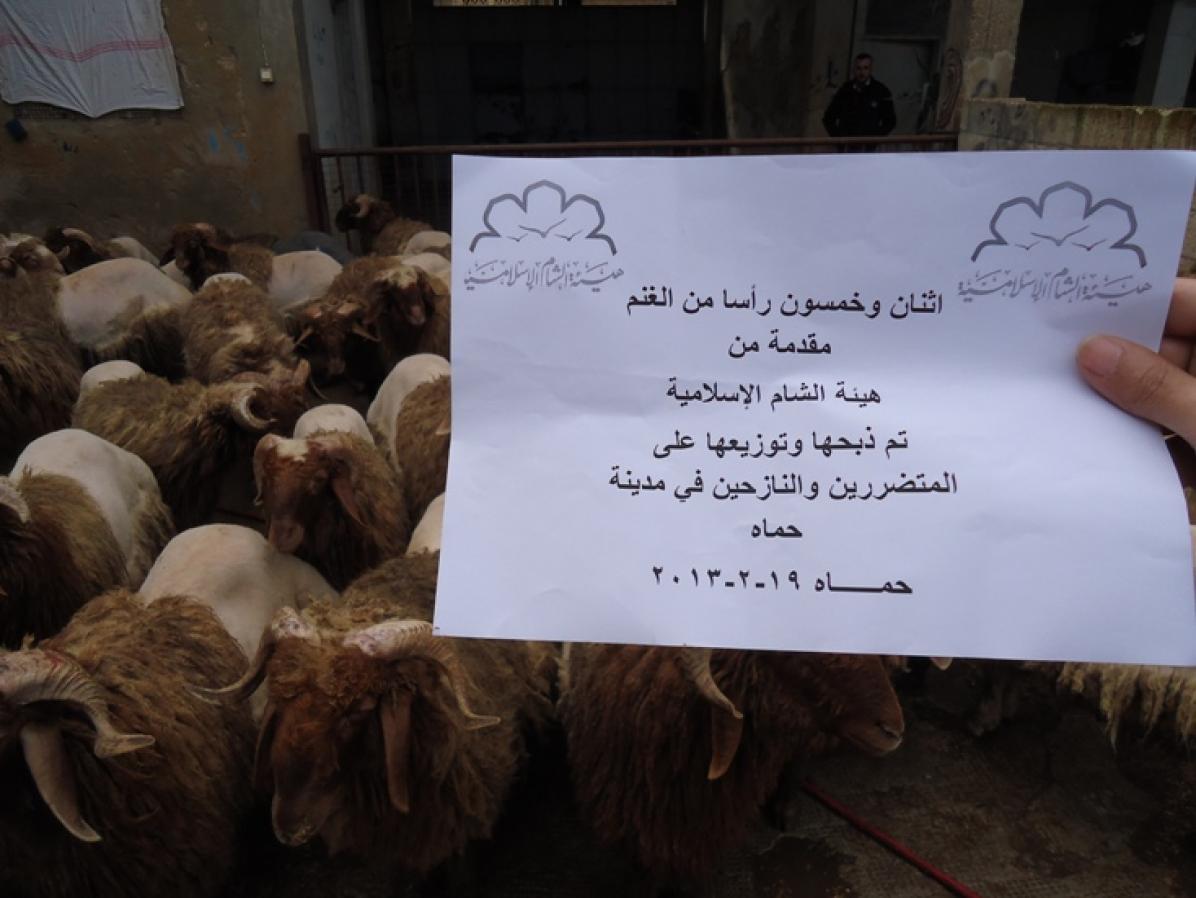 هيئة الشام الإسلامية
هيئة الشام الإسلامية
اثنان وخمسون رأسا من الغنم
مقدمة من
هيئة الشام الإسلامية
تم ذبحها وتوزيعها على
المتضررين والنازحين في مدينة
حماه
حمـــــاه ١٩-٢-٢٠١٣